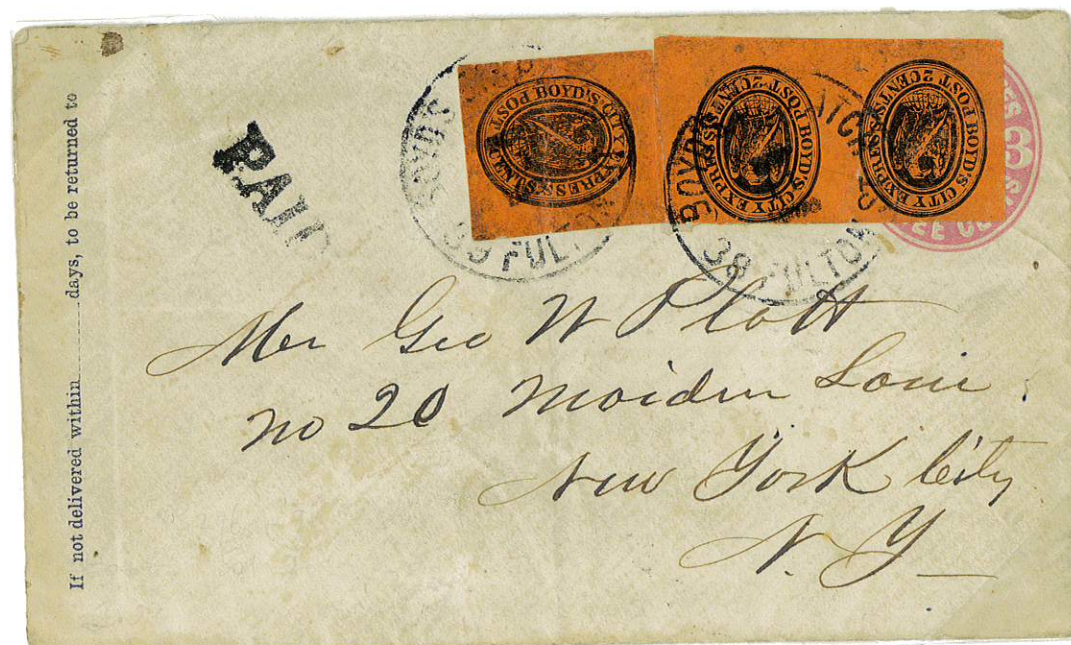 If not delivered within days, to be returned to
PAID
BOYD'S CITY EXPRESS POST 2 CENTS
BOYD'S CITY EXPRESS POST 2 CENTS
BOYD'S CITY EXPRESS POST 2 CENTS
BOYD'S
39 FULTON
BOYD'S
39 FULTON
3
Mr Geo W Platt
No 20 Maiden Lane
New York City
N. Y